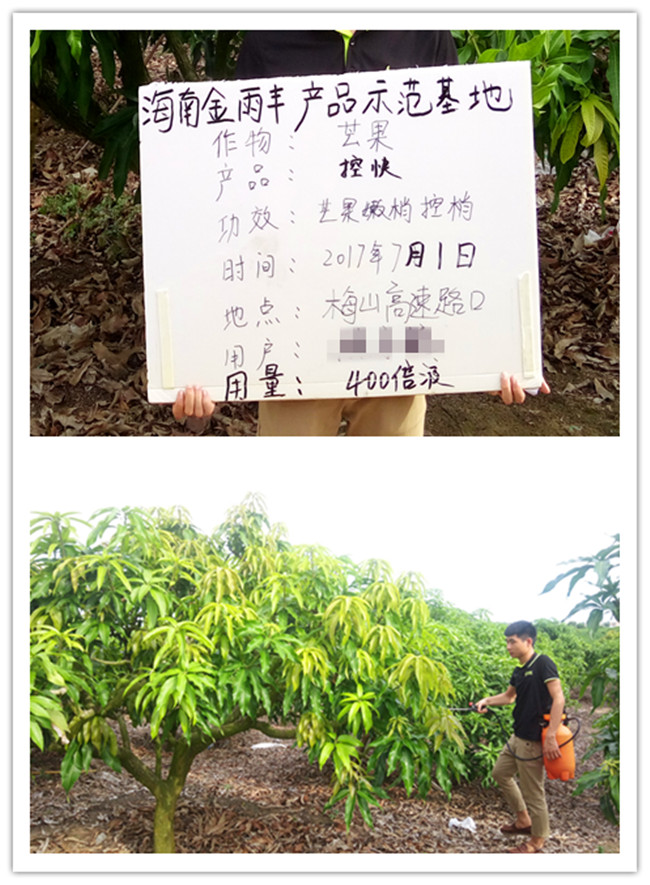 海南金雨丰产品示范基地
作物：芒果
产品：控快
功效：芒果嫩梢控梢
时间：2017年7月1日
地点：梅山高速路口
用户：
用量：400倍液